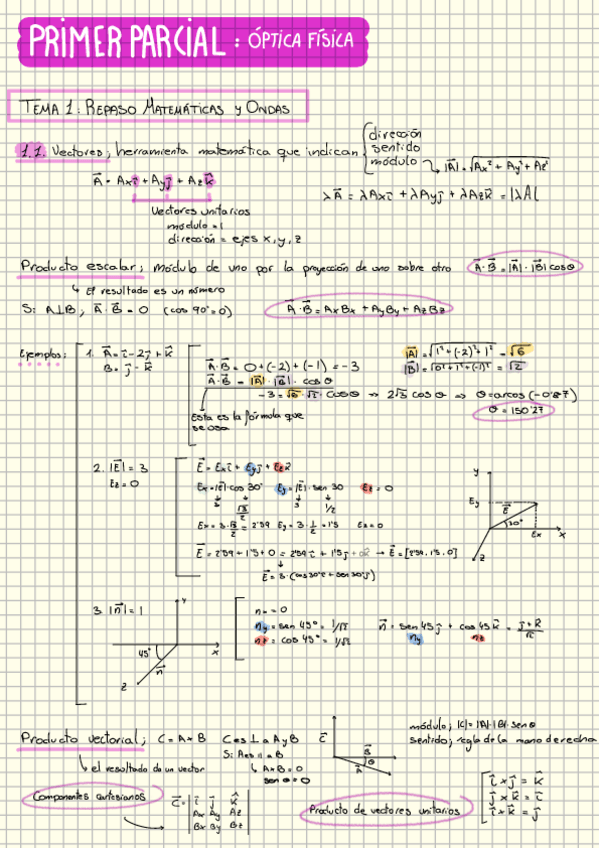 PRIMER PARCIAL : ÓPTICA FÍSICA
TEMA 1: REPASO MATEMÁTICAS Y ONDAS
1.1. Vectores; herramienta matemática que indican { dirección sentido módulo ↳ |A| = √Ax² + Ay² + Az²
A⃗ = Axi⃗ + Ayj⃗ + Azk⃗
λA⃗ = λAxi⃗ + λAyj⃗ + λAzk⃗ = |λA|
Vectores unitarios
módulo = 1
dirección = ejes x, y, z
Producto escalar; módulo de uno por la proyección de uno sobre otro A⃗·B⃗ = |A⃗|·|B⃗| cosθ
↳ El resultado es un número
S: A⊥B, A⃗·B⃗ = 0 (cos 90° = 0) A⃗·B⃗ = AxBx + AyBy + AzBz
Ejemplos: 1. A⃗ = i⃗ - 2j⃗ + k⃗
B = j⃗ - k⃗
A⃗·B⃗ = 0 + (-2) + (-1) = -3
A⃗·B⃗ = |A⃗|·|B⃗|·cosθ
-3 = √6·√2·cosθ → 2√3 cosθ → θ = arcos (-0'87)
θ = 150'27
|A⃗| = √1² + (-2)² + 1² = √6
|B⃗| = √0² + 1² + (-1)² = √2
Esta es la fórmula que
se usa
2. |E⃗| = 3
Ez = 0
E⃗ = Exi⃗ + Eyj⃗ + Ezk⃗
Ex = |E⃗|·cos 30° Ey = |E⃗|·sen 30 Ez = 0
3 √3/2 3 1/2
Ex = 3·√3/2 = 2'59 Ey = 3·1/2 = 1'5 Ez = 0
E⃗ = 2'59 + 1'5 + 0 = 2'59i⃗ + 1'5j⃗ + 0k⃗ → E⃗ = [2'59, 1'5, 0]
E⃗ = 3·(cos 30°i⃗ + sen 30°j⃗)
y
Ey
E⃗
30°
Ex
x
z
3. |n⃗| = 1
y
x
45°
n⃗
z
nx = 0
ny = sen 45° = 1/√2
nz = cos 45° = 1/√2
n⃗ = sen 45j⃗ + cos 45k⃗ = j⃗ + k⃗/√2
ny nz
Producto vectorial; C = A × B C es ⊥ a A y B
↳ el resultado da un vector
S: A es ∥ a B
↳ A × B = 0
sen θ = 0
C⃗
B⃗
θ
A⃗
módulo; |C| = |A|·|B|·senθ
sentido; regla de la mano derecha
Componentes cartesianos
C⃗ = | i⃗ j⃗ k⃗ |
| Ax Ay Az |
| Bx By Bz |
Producto de vectores unitarios
i⃗ × j⃗ = k⃗
j⃗ × k⃗ = i⃗
i⃗ × k⃗ = j⃗